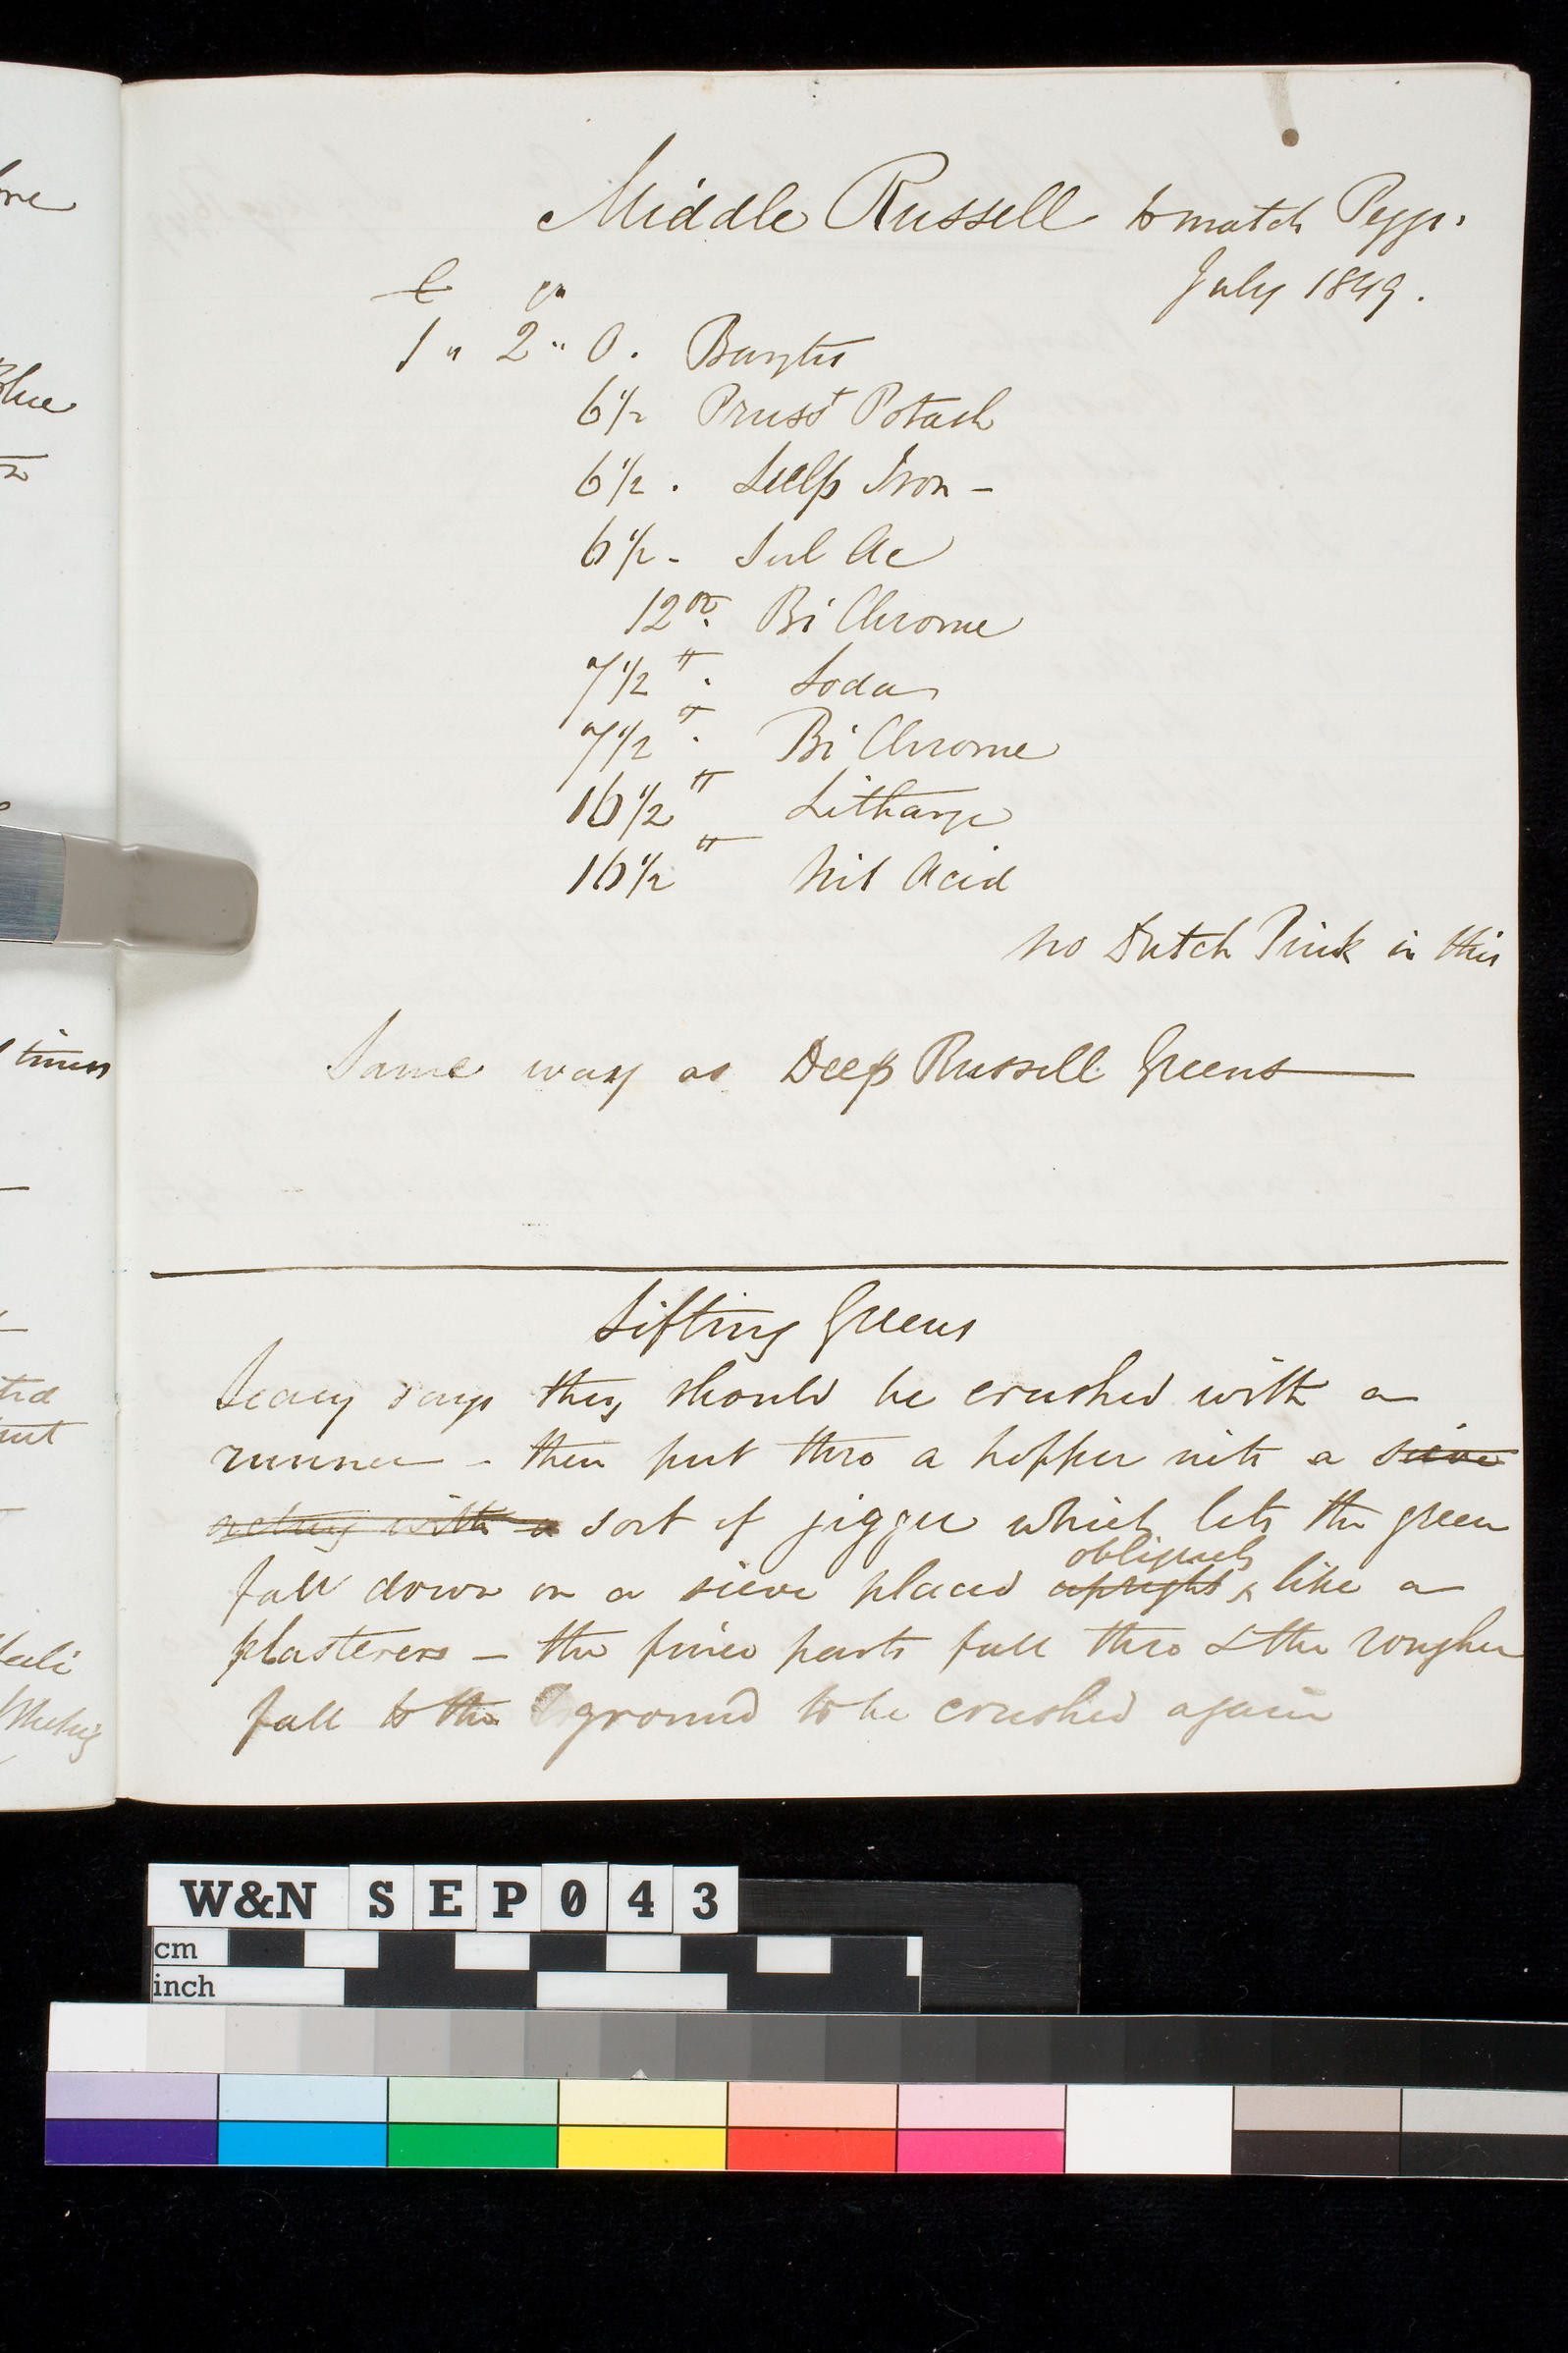 Middle Russell to match Peggs.
July 1849.
C qr
1 " 2 " 0. Barytes
6 1/2 Prusst Potash
6 1/2. Sulp Iron -
6 1/2 - Sul Ac
12 oz. Bi Chrome
7 1/2 " . Soda
7 1/2 " . Bi Chrome
16 1/2 " Litharge
16 1/2 " Nit Acid
no Dutch Pink in this
Same way as Deep Russell Greens
Sifting Greens
says they should be crushed with a
runner - then put thro a hopper with a sieve
acting with a sort of jigger which lets the green
obliquely
fall down on a sieve placed upright & like a
plasterers - the finer parts fall thro & the rougher
fall to the ground to be crushed again
me
Blue
times
ted
W&N SEP043
cm
inch